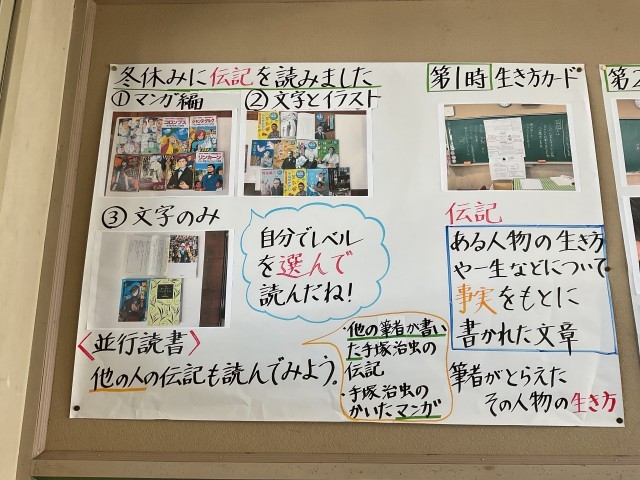 冬休みに伝記を読みました
①マンガ編
②文字とイラスト
コロンブス
ジャンヌ・ダルク
リンカーン
③文字のみ
自分でレベル
を選んで
読んだね!
〈並行読書〉
他の人の伝記も読んでみよう。
・他の筆者が書い
た手塚治虫の
伝記
・手塚治虫の
かいたマンガ
第1時 生き方カード
伝記
ある人物の生き方
や一生などについて、
事実をもとに
書かれた文章
筆者がとらえた
その人物の生き方
第2